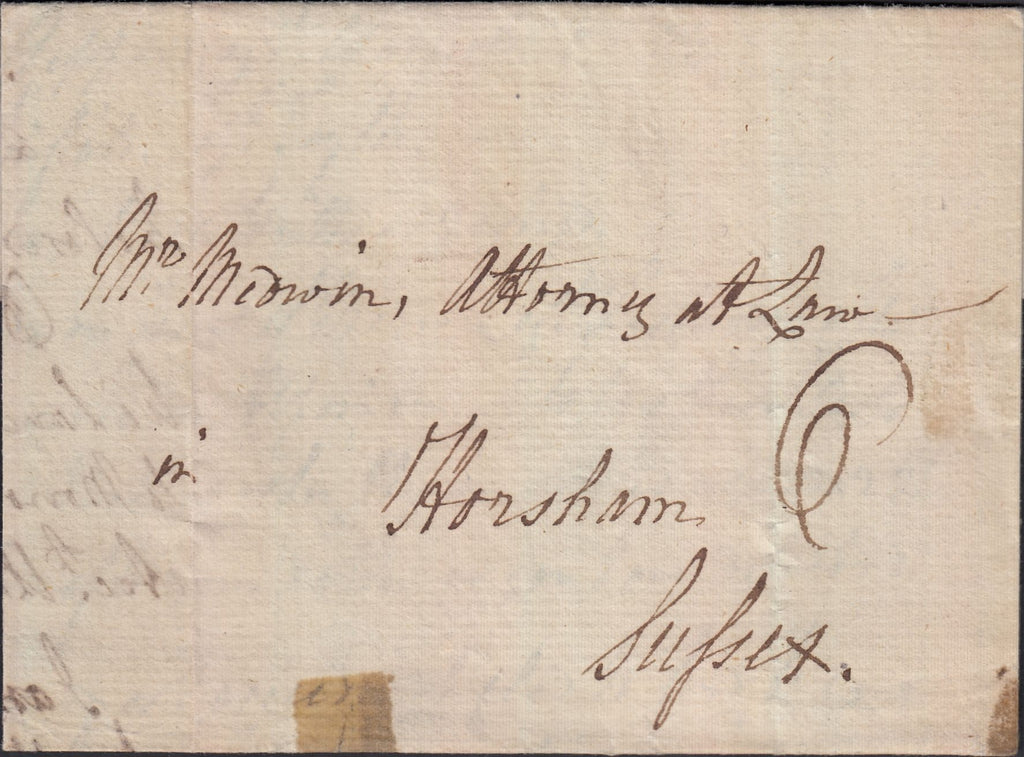 Mr Medwin, Attorny at Law
in Horsham
Sussex.